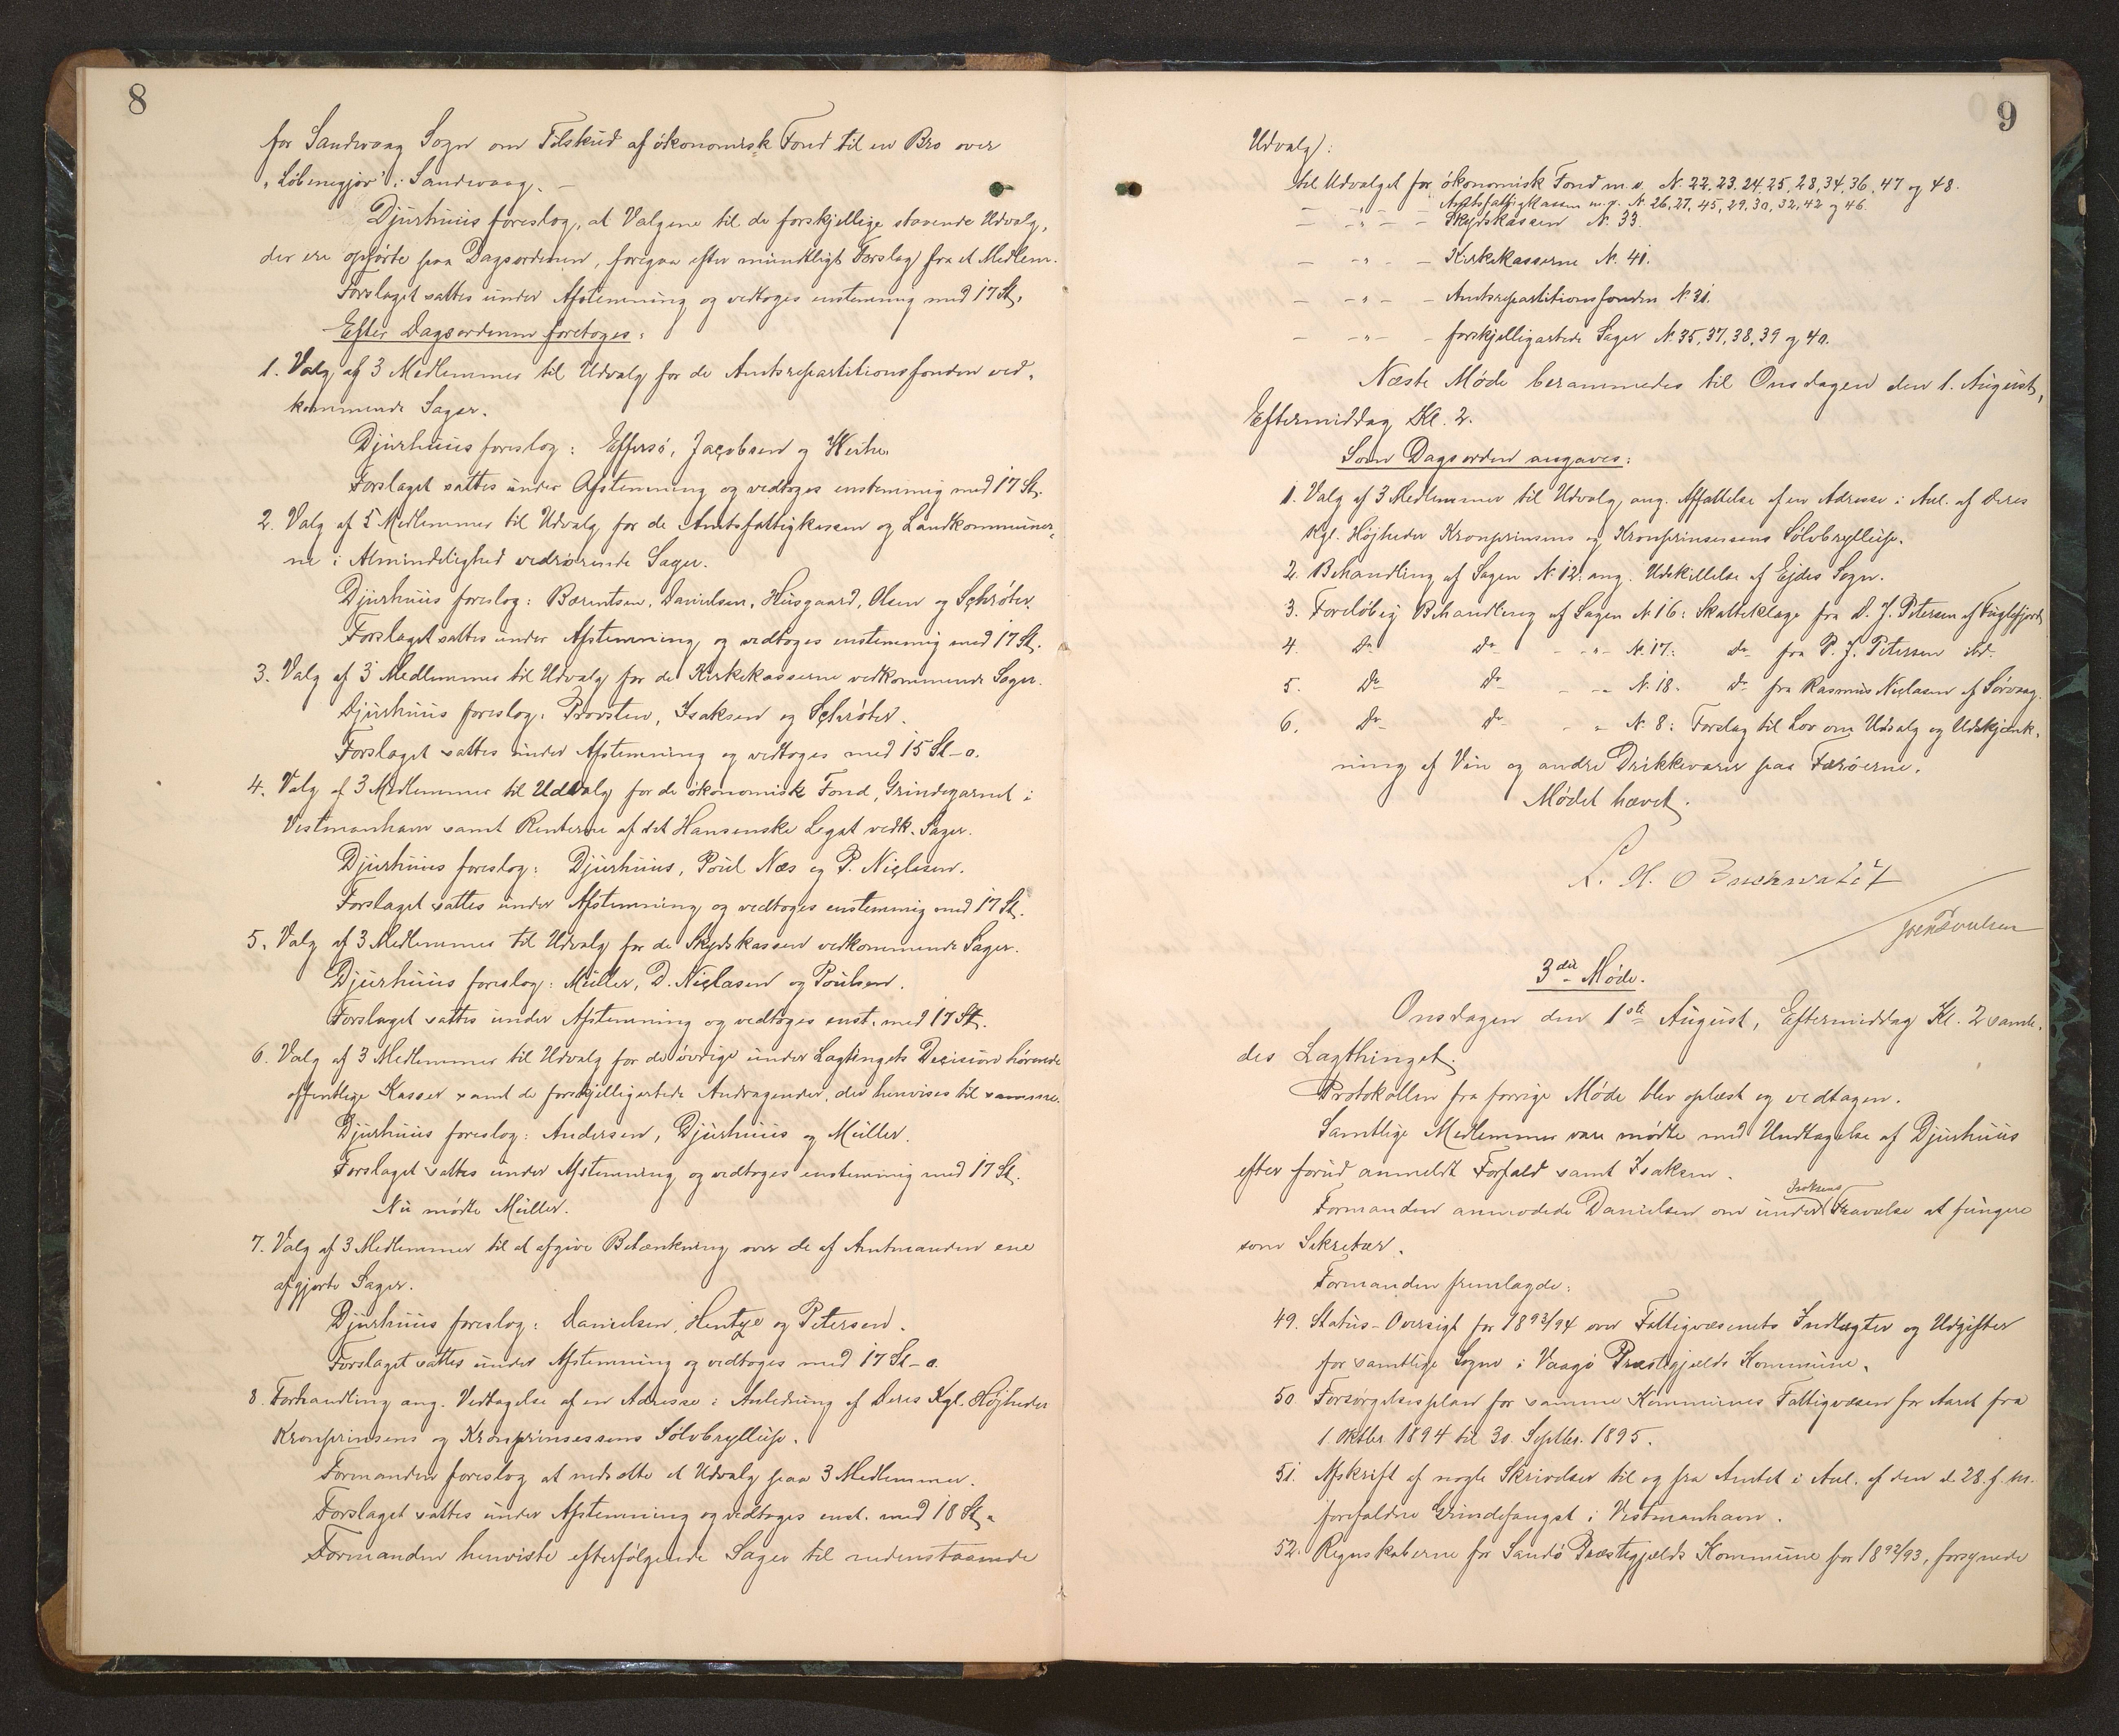 8
for Sandvaag Sogn om Tilskud af økonomisk Fond til en Bro over
"Löbnisgjov" i Sandvaag. –
Djurhuus foreslog, at Valgene til de forskjellige staaende Udvalg,
der ere opførte paa Dagsordenen, foregaa efter mundtligt Forslag fra et Medlem.
Forslaget sattes under Afstemning og vedtoges enstemmig med 17 St.
Efter Dagsordenen foretoges:
1. Valg af 3 Medlemmer til Udvalg for de Amtsrepartitionsfonden ved-
kommende Sager.
Djurhuus foreslog: Effersø, Jacobsen og
Forslaget sattes under Afstemning og vedtoges enstemmig med 17 St.
2. Valg af 5 Medlemmer til Udvalg for de Amtsfattigkassen og Landkommuner-
ne i Almindelighed vedrørende Sager.
Djurhuus foreslog: Bærentsen, Danielsen, Husgaard, Olsen og Schrøter.
Forslaget sattes under Afstemning og vedtoges enstemmig med 17 St.
3. Valg af 3 Medlemmer til Udvalg for de Kirkekasserne vedkommende Sager.
Djurhuus foreslog: Provsten, Isaksen og Schrøter.
Forslaget sattes under Afstemning og vedtoges med 15 St – o.
4. Valg af 3 Medlemmer til Udvalg for de økonomisk Fond, Grindegarnet i
Vestmanhavn samt Renterne af det Hansenske Legat vedk. Sager.
Djurhuus foreslog: Djurhuus, Poul Næs og P. Niclasen.
Forslaget sattes under Afstemning og vedtoges enstemmig med 17 St.
5. Valg af 3 Medlemmer til Udvalg for de Skydskassen vedkommende Sager.
Djurhuus foreslog: Müller, D. Niclasen og Poulsen.
Forslaget sattes under Afstemning og vedtoges enst. med 17 St.
6. Valg af 3 Medlemmer til Udvalg for de øvrige under Lagtingets Decision hørende
offentlige Kasser samt de forskjelligartede Andragender, der henvises til samme.
Djurhuus foreslog: Andersen, Djurhuus og Müller.
Forslaget sattes under Afstemning og vedtoges enstemmig med 17 St.
Nu mødte Müller.
7. Valg af 3 Medlemmer til at afgive Betænkning over de af Amtmanden ene
afgjorte Sager.
Djurhuus foreslog: Danielsen, Hentze og Petersen.
Forslaget sattes under Afstemning og vedtoges med 17 St – o.
8. Forhandling ang. Vedtagelse af en Adresse i Anledning af Deres Kgl. Højheder
Kronprinsens og Kronprinsessens Sølvbryllup.
Formanden foreslog at nedsætte et Udvalg paa 3 Medlemmer.
Forslaget sattes under Afstemning og vedtoges enst. med 18 St.
Formanden henviste efterfølgende Sager til nedenstaaende
9
Udvalg:
til Udvalget for økonomisk Fond m.v. N. 22, 23, 24, 25, 28, 34, 36, 47 og 48.
– – " – – Amtsfattigkassen m.v. N. 26, 27, 45, 29, 30, 32, 42 og 46.
– – " – – Skydskassen N. 33.
– – " – – Kirkekasserne N. 41.
– – " – – Amtsrepartitionsfonden N. 31.
– – " – – forskjelligartede Sager N. 35, 37, 38, 39 og 40.
Næste Møde berammedes til Onsdagen den 1. August,
Eftermiddag Kl. 2.
Som Dagsorden angaves:
1. Valg af 3 Medlemmer til Udvalg ang. Affattelse af en Adresse i Anl. af Deres
Kgl. Højheder Kronprinsens og Kronprinsessens Sølvbryllup.
2. Behandling af Sagen N. 12. ang. Udskillelse af Ejdes Sogn.
3. Foreløbig Behandling af Sagen N. 16: Skatteklage fra D. J. Petersen af Fuglefjord
4. Do Do – " – N. 17: Do fra P. J. Petersen ibd.
5. Do Do – " – N. 18. Do fra Rasmus Niclasen af Sørvaag.
6. Do Do – " N. 8: Forslag til Lov om Udsalg og Udskjænk-
ning af Vin og andre Drikkevarer paa Færøerne.
Mødet hævet.
3die Møde.
Onsdagen den 1ste August, Eftermiddag Kl. 2 samle-
des Lagthinget.
Protokollen fra forrige Møde blev oplæst og vedtagen.
Samtlige Medlemmer vare mødte med Undtagelse af Djurhuus
efter forud anmeldt Forfald samt Isaksen.
Formanden anmodede Danielsen om under Isaksens Fraværelse at fungere
som Sekretær.
Formanden fremlagde:
49. Status-Oversigt for 1893/94 over Fattigvæsenets Indtægter og Udgifter
for samtlige Sogne i Vaagø Præstegjælds Kommune.
50. Forsørgelsesplan for samme Kommunes Fattigvæsen for Aaret fra
1 Oktbr 1894 til 30. Septbr. 1895.
51. Afskrift af nogle Skrivelser til og fra Amtet i Anl. af den d. 28. f. M.
forefaldne Grindefangst i Vestmanhavn.
52. Regnskaberne for Sandø Præstegjælds Kommune for 1892/93, forsynede